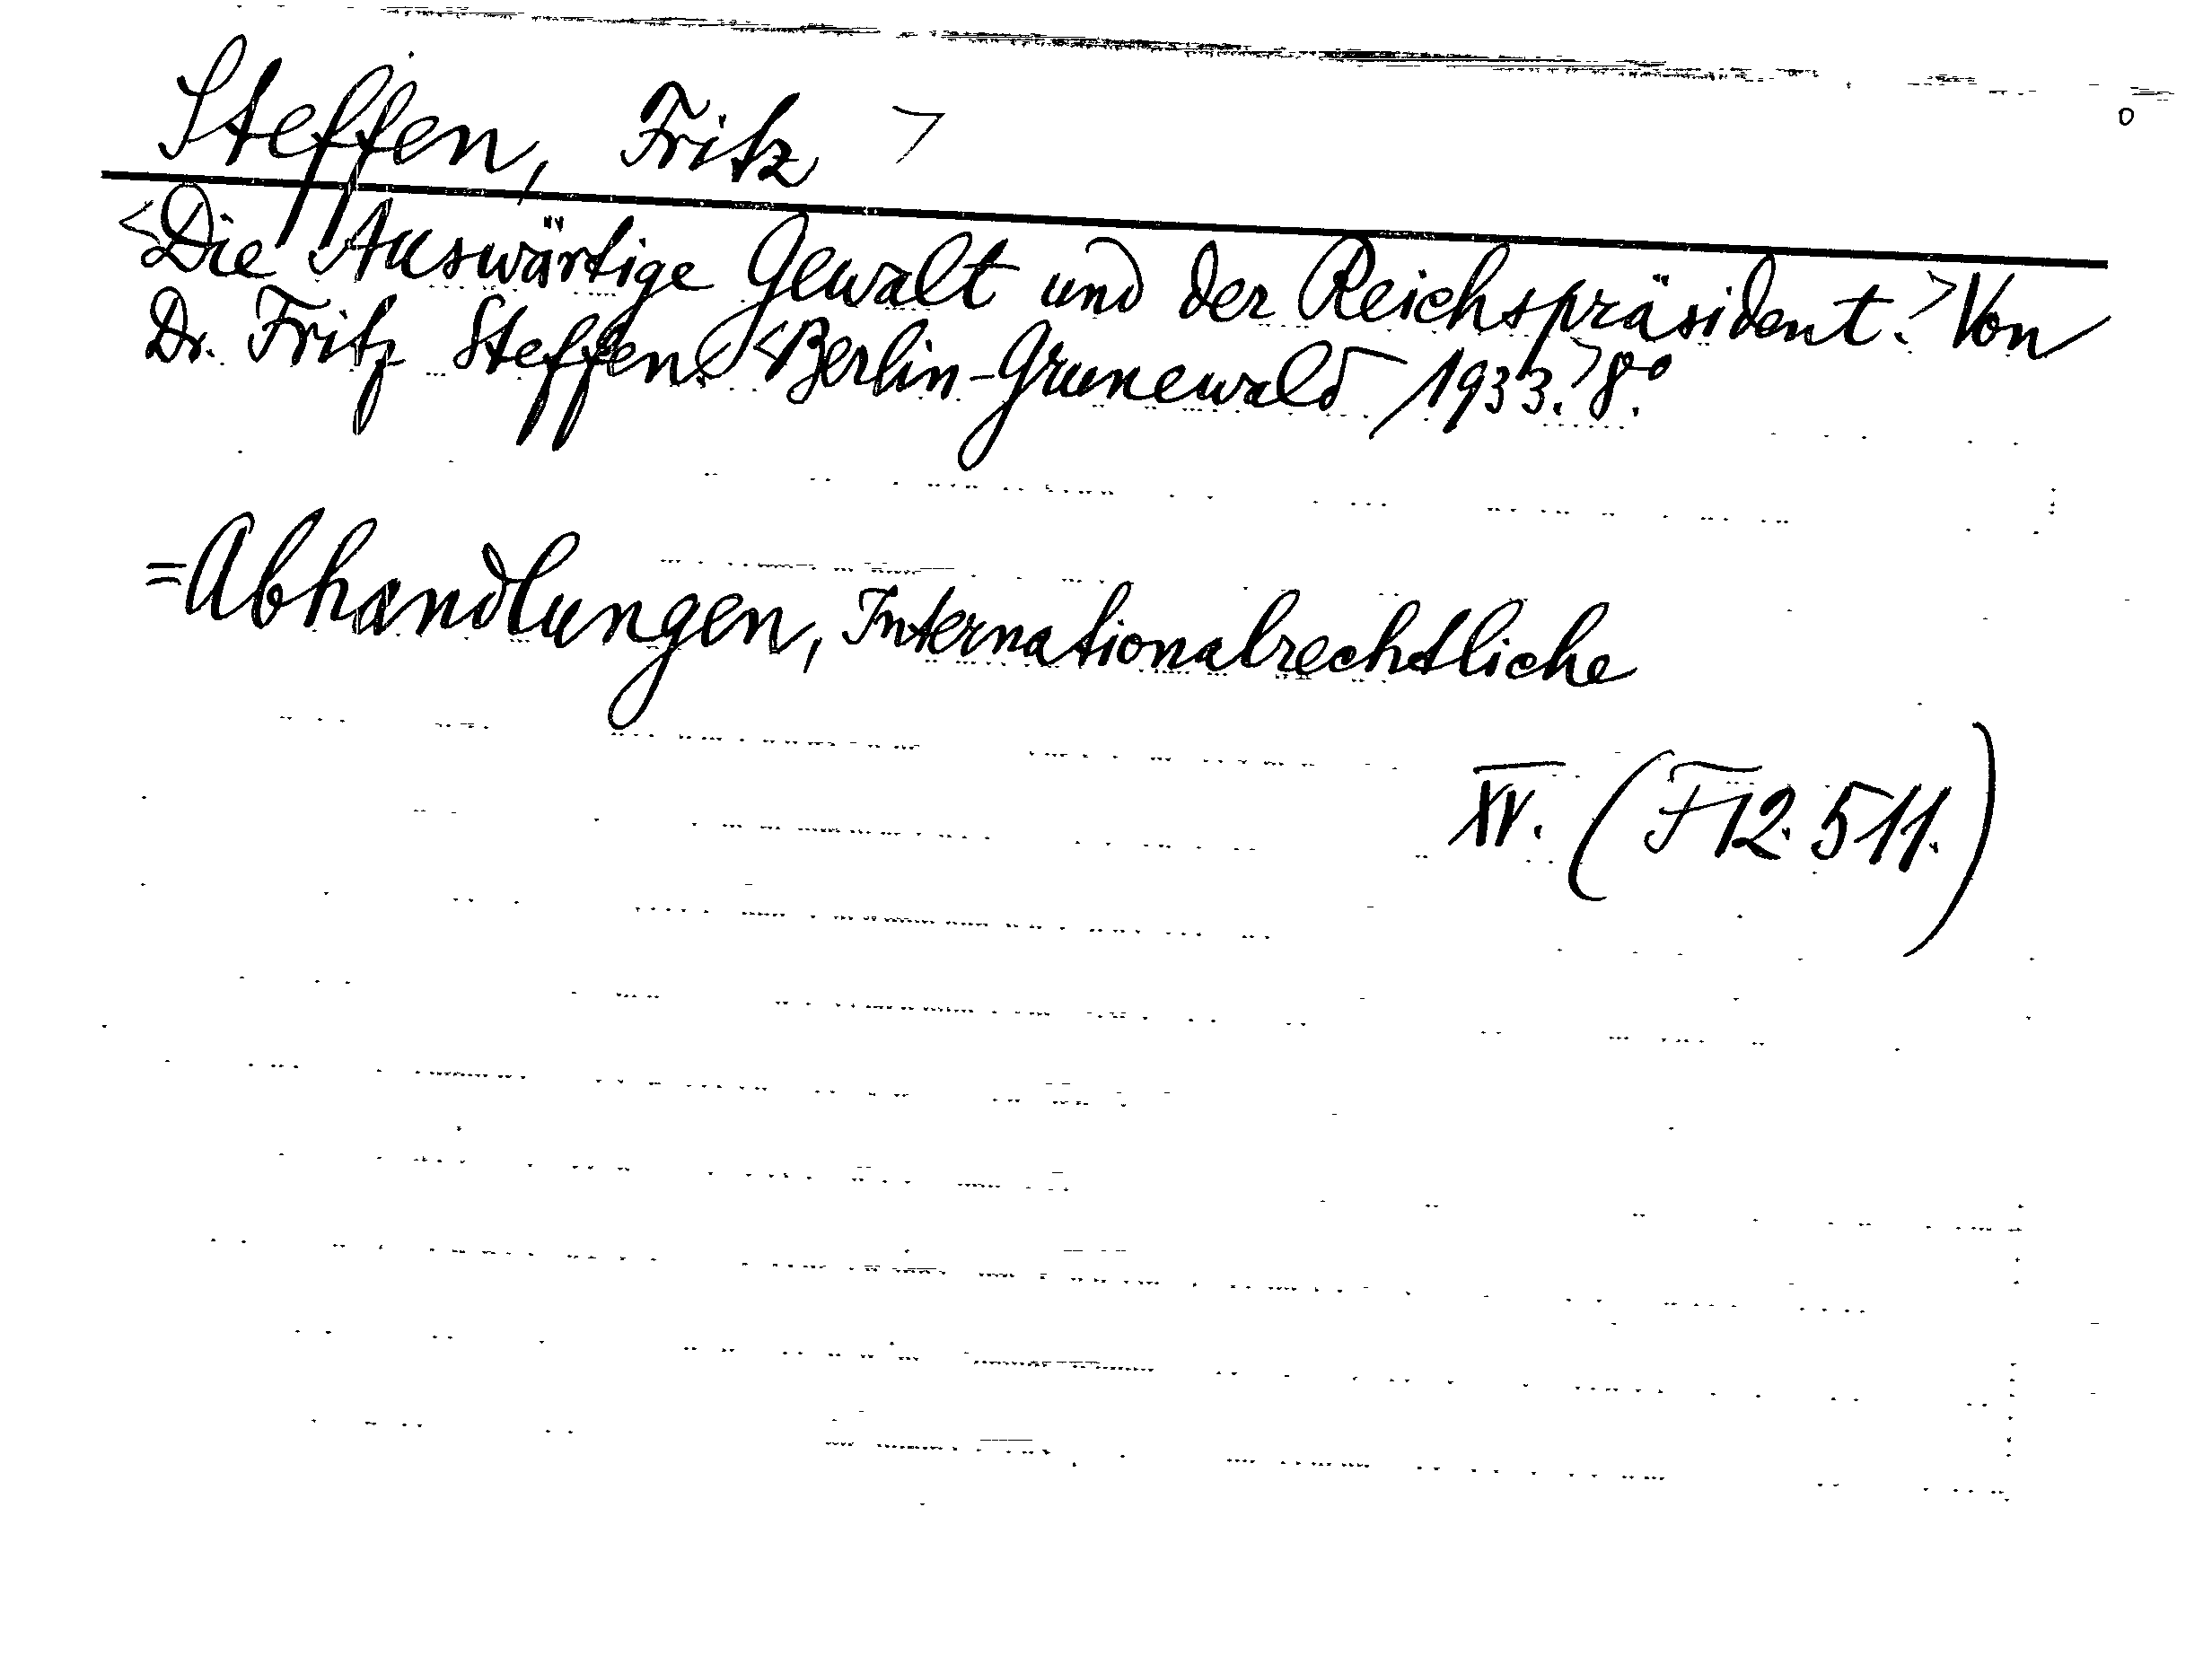 Steffen, Fritz >
<Die Auswärtige Gewalt und der Reichspräsident.> Von
Dr. Fritz Steffen. <Berlin-Grunewald 1933.> 8.°
=Abhandlungen, Internationalrechtliche
XV. (F 12. 511.)